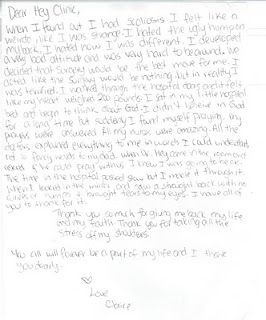 Dear Hey Clinic,
When I found out I had scoliosis I felt like a
weirdo like I was strange. I hated the ugly hump on
my back, I hated how I was different. I developed
a very bad attitude and was very hard to be around. We
decided that surgery would be the best move for me. I
acted like the surgery would be nothing but in reality I
was terrified. I walked through the hospital doors and it felt
like my heart weighed 200 pounds. I got in my little hospital
bed and began to think about God. I didn't believe in God
for a long time but suddenly I found myself praying. My
prayers were answered. All my nurses were amazing. All the
doctors explained everything to me in words I could understand
not in fancy words. Dr. Hey came in the room and
asked if he could pray with us. I knew I was going to be ok.
The time in the hospital passed slow but I made it through it.
When I looked in the mirror and saw a straight back with no
curves or hump it brought tears to my eyes. I have all of
you to thank for it.
Thank you so much for giving me back my life
and my faith. Thank you for taking all the
stress off my shoulders.
You all will forever be a part of my life and I thank
you dearly.
Love
Claire